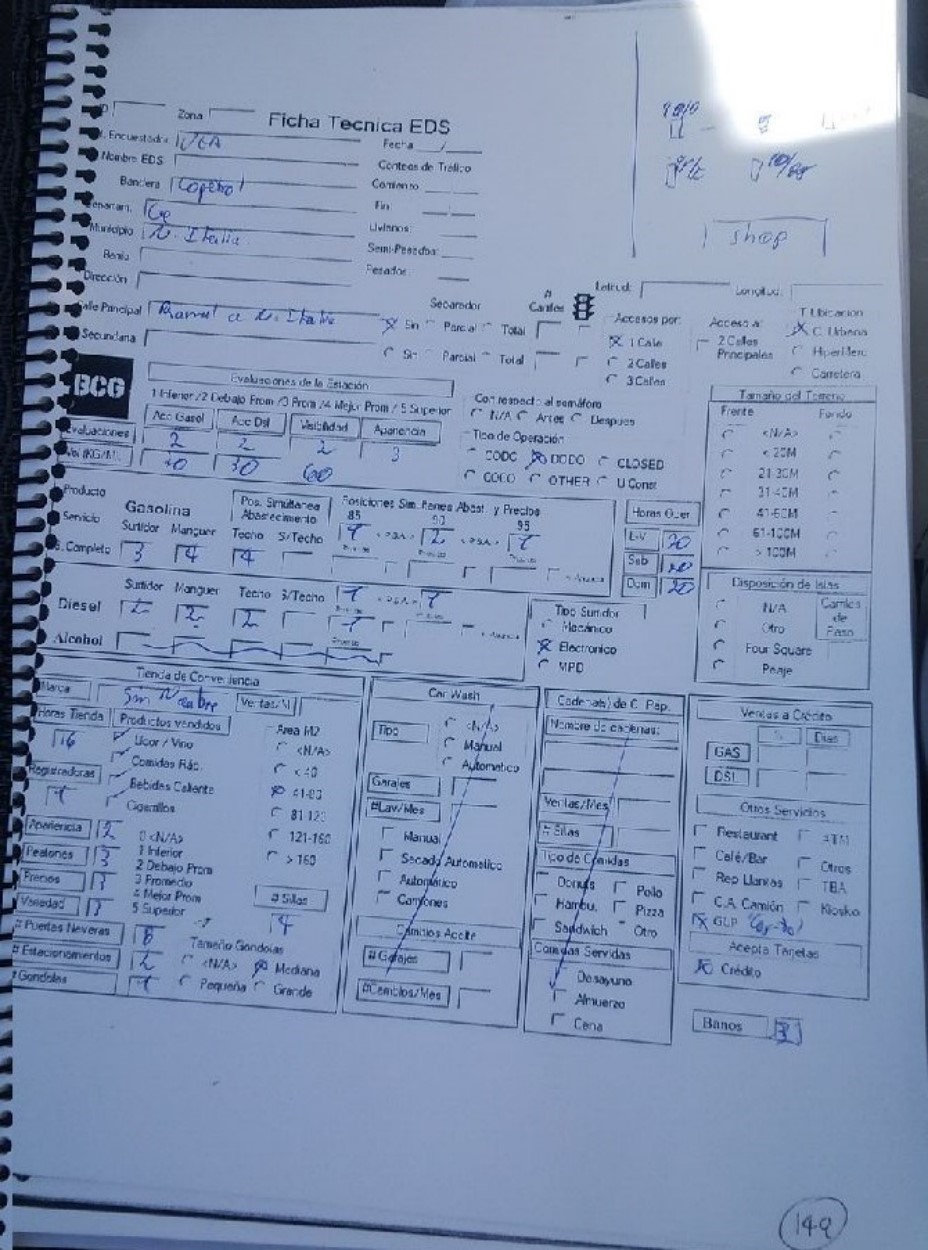 Zona
Ficha Tecnica EDS
Encuestador VEA
Fecha
Nombre EDS
Conteos de Tráfico
Bandera
Comienzo
Fin
Municipio N. Italia
Livianos
Semi-Pesados
Barrio
Pesados
Dirección
shop
Latitud:
Longitud:
Calle Principal Ramal a N. Italia
Separador
Sin Parcial Total
# Carriles
Accesos por:
1 Calle
2 Calles
3 Calles
Acceso a:
2 Calles Principales
T Ubicacion
C. Urbana
HiperMerc
Carretera
Secundaria
Sin Parcial Total
BCG
Evaluaciones de la Estación
1 Inferior /2 Debajo Prom /3 Prom /4 Mejor Prom / 5 Superior
Acc Gasol Acc Dsl Visibilidad Apariencia
Evaluaciones 2 2 2 3
Vol (KG/M) 30 30 60
Con respecto al semáforo
N/A Antes Despues
Tipo de Operación
CODO DODO CLOSED
COCO OTHER U Const
Tamaño del Terreno
Frente Fondo
<N/A>
< 20M
21-30M
31-40M
41-60M
61-100M
> 100M
Producto Gasolina
Servicio Surtidor Manguer
Pos. Simultánea Abastecimiento
Techo S/Techo
Posiciones Simultaneas Abast. y Precios
85 90 95
1 2 1
S. Completo 3 4 4
Horas Oper
L-V 20
Sab 20
Dom 20
Diesel Surtidor Manguer Techo S/Techo
2 2 2
Alcohol
Tipo Surtidor
Mecánico
Electronico
MPD
Disposición de Islas
N/A
Otro
Four Square
Peaje
Carriles de Paso
Tienda de Conveniencia
Marca Sin Nombre Ventas/M
Horas Tienda 16
Productos vendidos
Licor / Vino
Comidas Ráp.
Bebidas Caliente
Cigarrillos
Area M2
<N/A>
< 40
41-80
81-120
121-160
> 160
Registradoras 1
Apariencia 2
Peatones 3
Precios 3
Variedad 3
0 <N/A>
1 Inferior
2 Debajo Prom
3 Promedio
4 Mejor Prom
5 Superior
# Sillas 4
# Puertas Neveras 8
# Estacionamientos 2
# Gondolas 1
Tamaño Gondolas
<N/A> Mediana
Pequeña Grande
Car Wash
Tipo
<N/A>
Manual
Automatico
Garajes
#Lav/Mes
Manual
Secado Automatico
Automático
Camiones
Cambios Aceite
#Garajes
#Cambios/Mes
Cadena(s) de C. Rap.
Nombre de cadenas:
Ventas/Mes
# Sillas
Tipo de Comidas
Donuts Pollo
Hambu. Pizza
Sandwich Otro
Comidas Servidas
Desayuno
Almuerzo
Cena
Ventas a Crédito
% Dias
GAS
DSL
Otros Servicios
Restaurant ATM
Café/Bar Otros
Rep Llantas TBA
C.A. Camión Kiosko
GLP
Acepta Tarjetas
Crédito
Banos 3
149